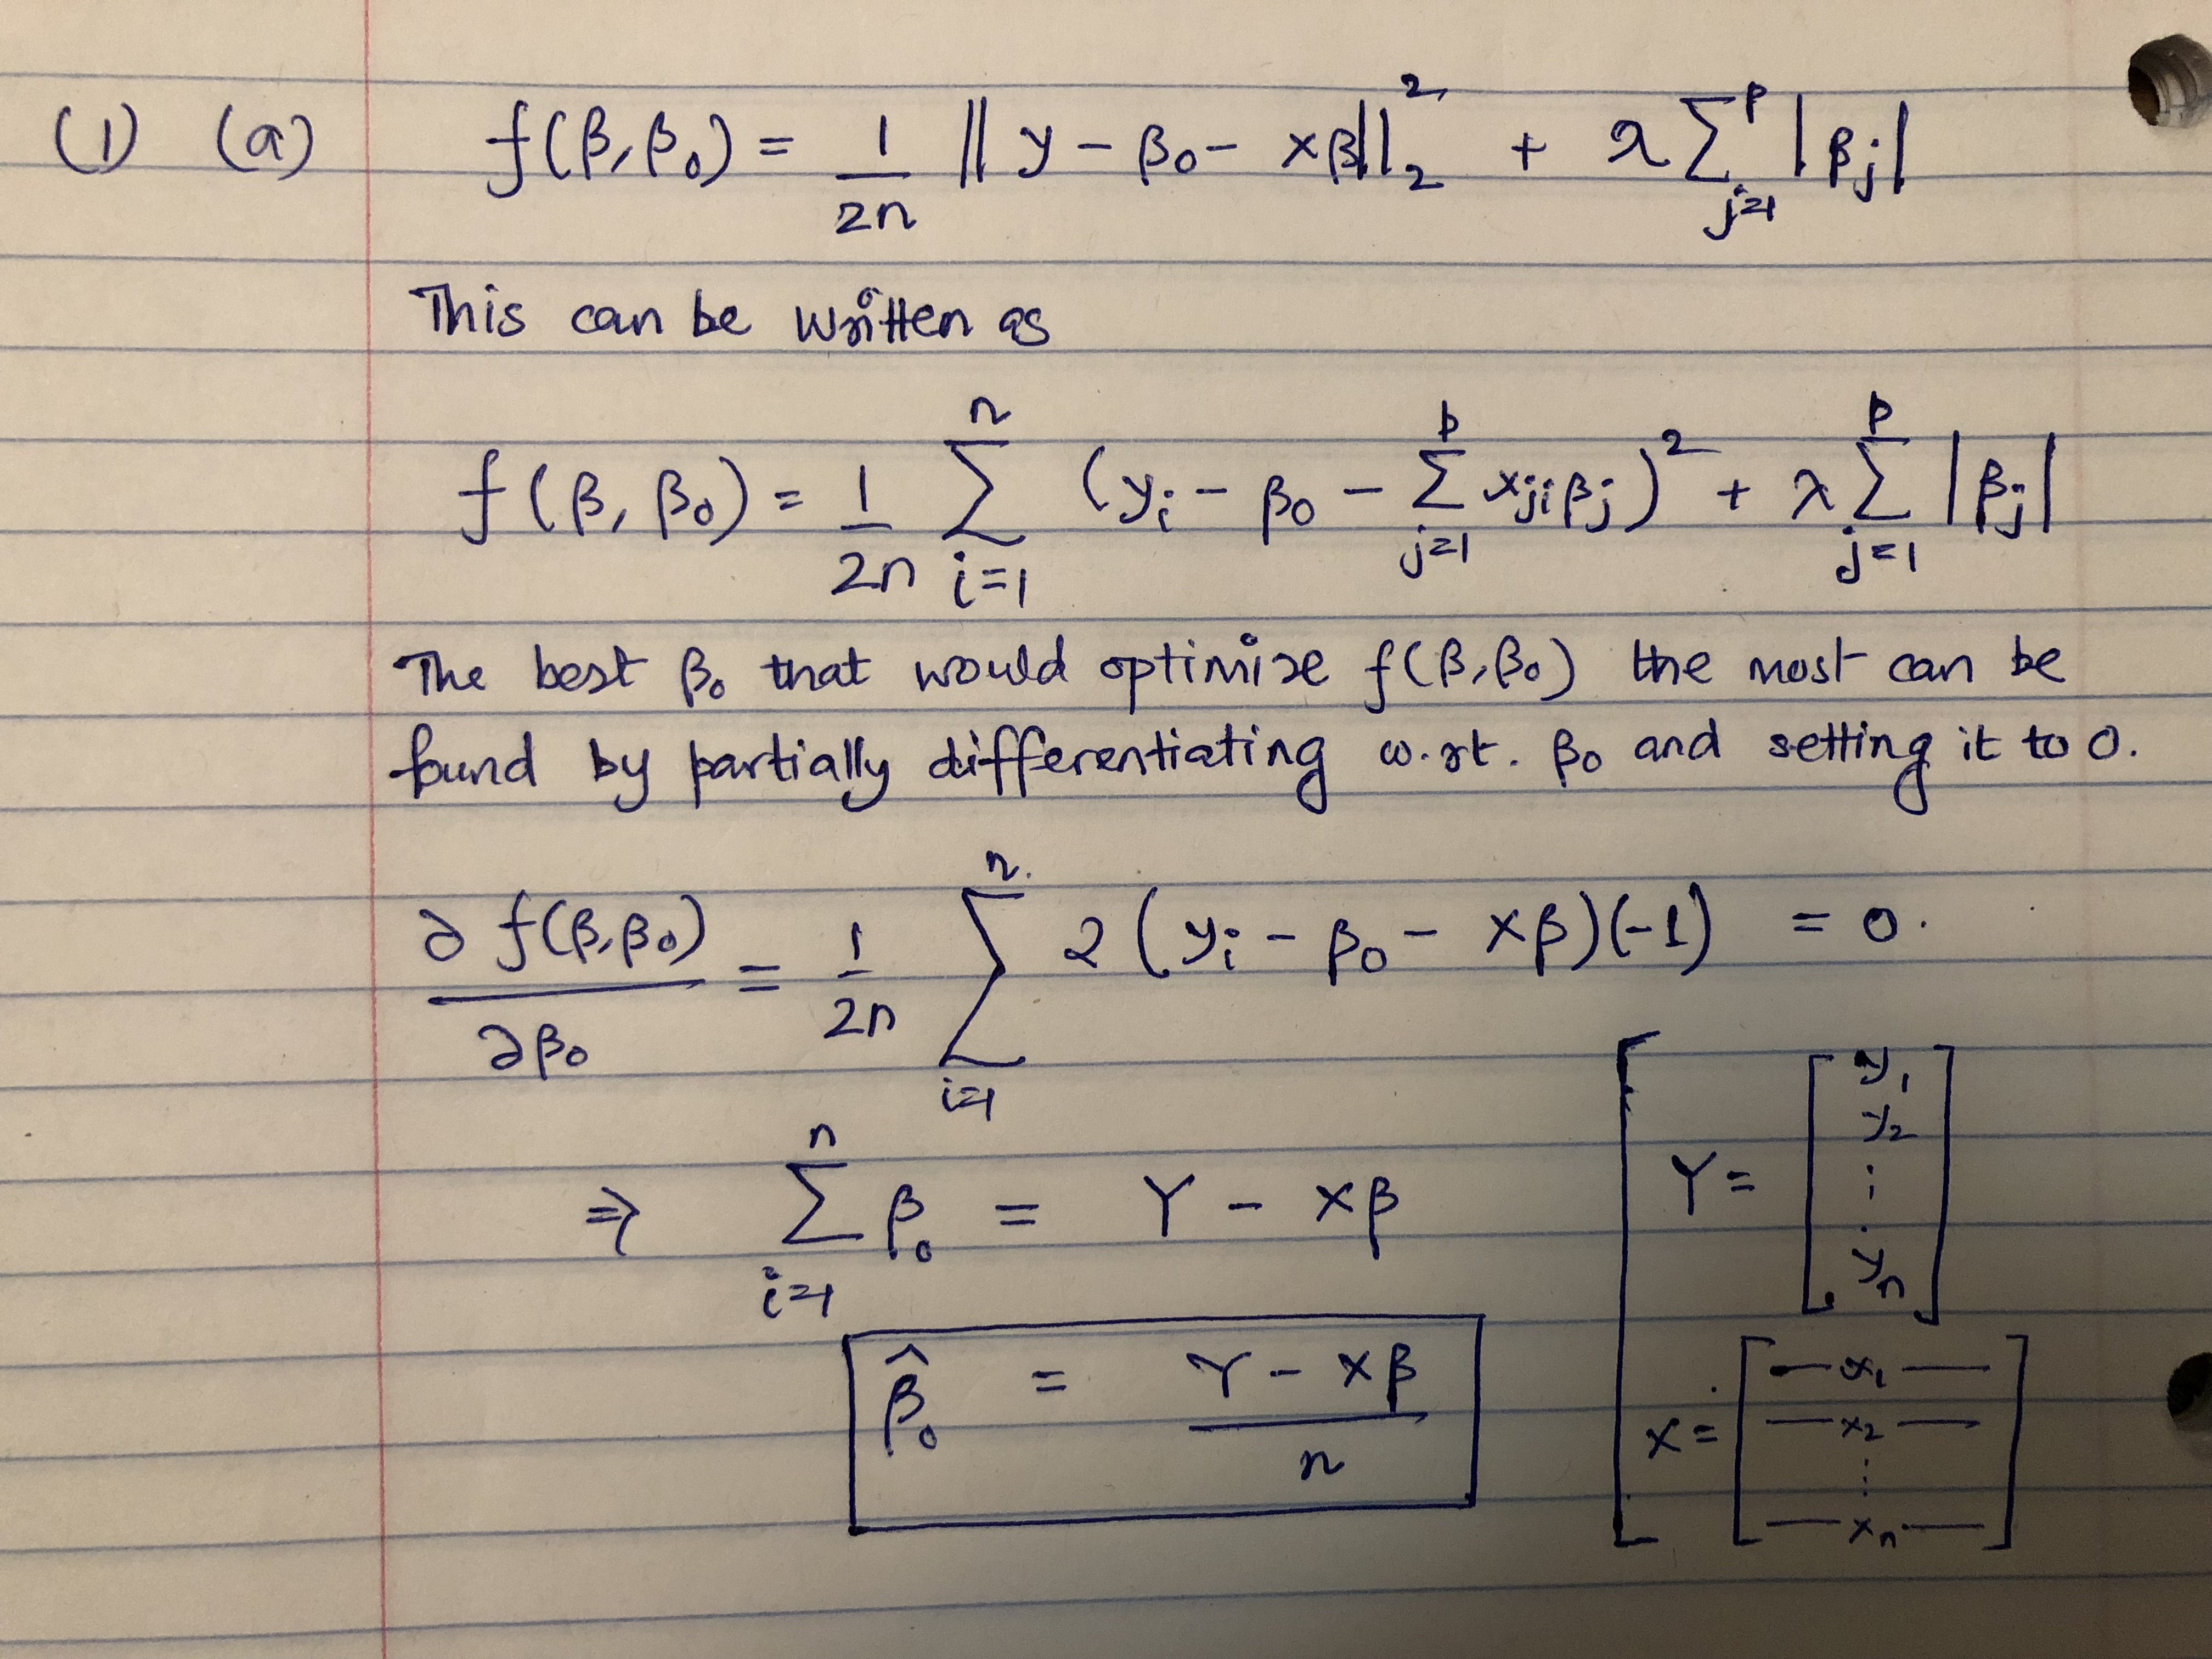 (1) (a) f(β, β₀) = 1/2n ‖ y − β₀ − xβ‖₂² + λ ∑_{j=1}^{p} |βj|
This can be written as
f(β, β₀) = 1/2n ∑_{i=1}^{n} (yi − β₀ − ∑_{j=1}^{p} xji βj)² + λ ∑_{j=1}^{p} |βj|
The best β₀ that would optimize f(β, β₀) the most can be
found by partially differentiating w.r.t. β₀ and setting it to 0.
∂ f(β, β₀)/∂β₀ = 1/2n ∑_{i=1}^{n} 2 (yi − β₀ − xβ)(-1) = 0.
⇒ ∑_{i=1}^{n} β₀ = Y − xβ
β̂₀ = (Y − xβ)/n
Y = [y₁ y₂ ⋮ yn]
x = [— x₁ — — x₂ — ⋮ — xn —]